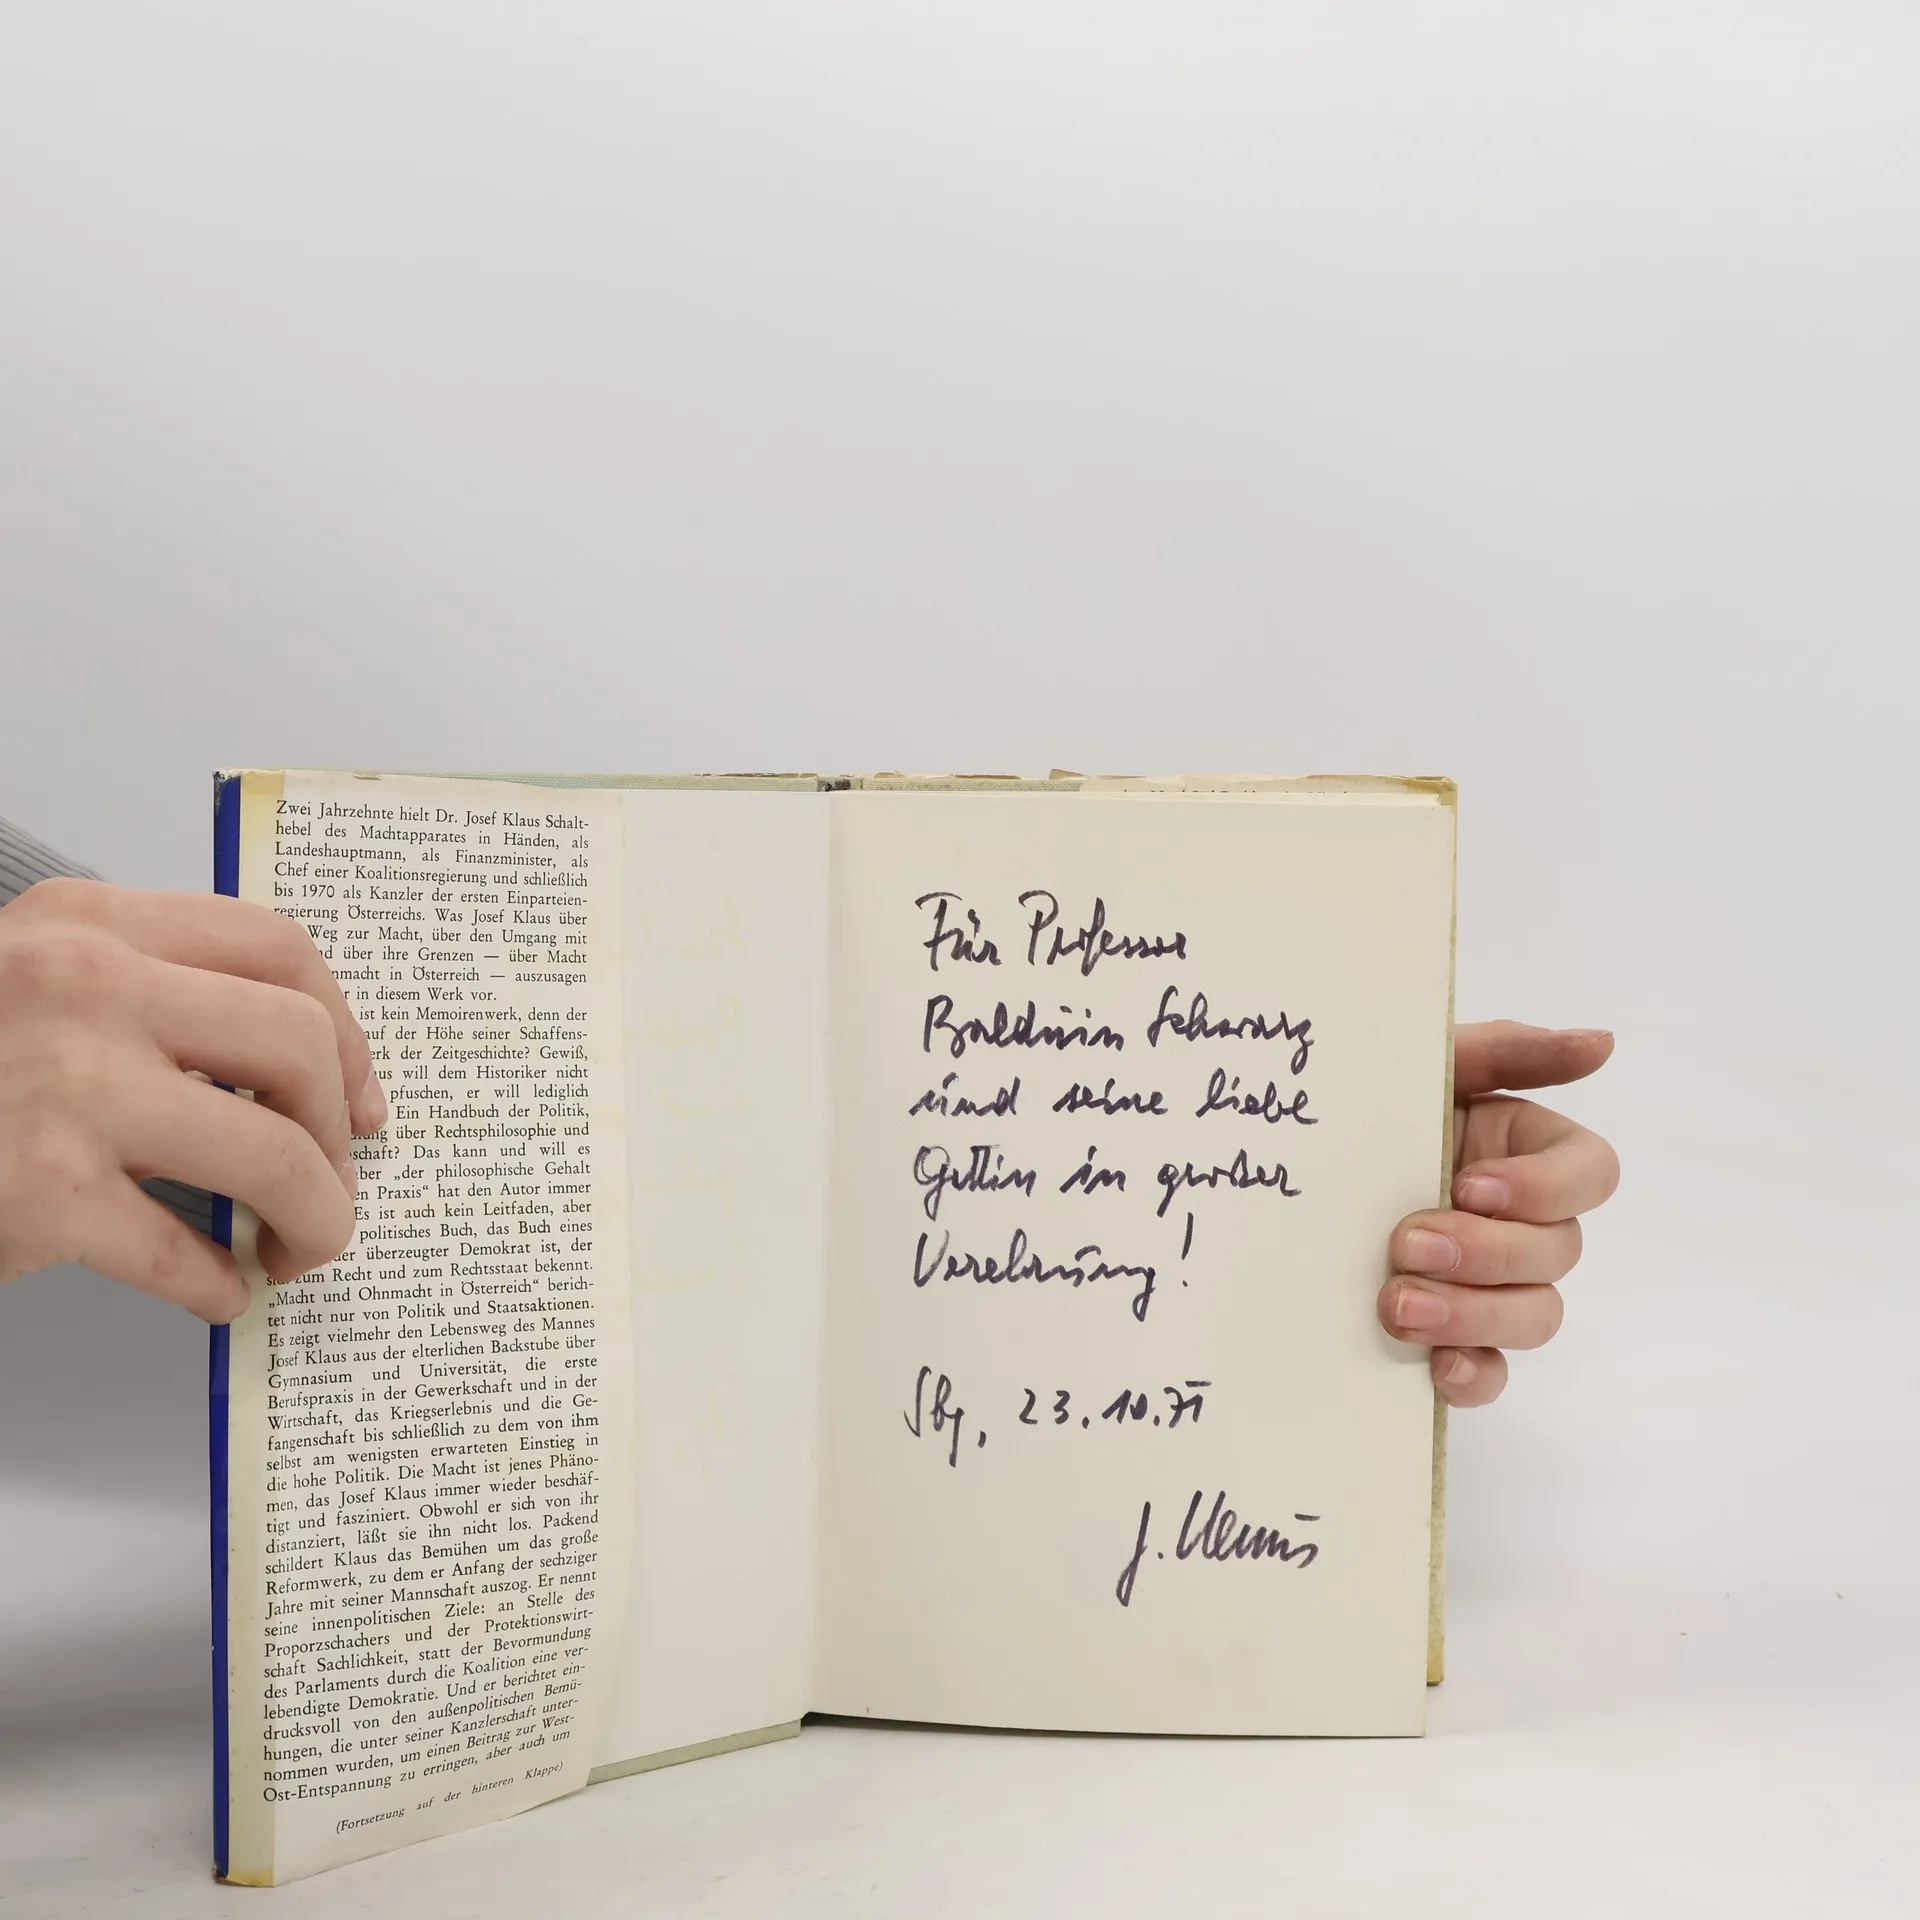 Zwei Jahrzehnte hielt Dr. Josef Klaus Schalt-
hebel des Machtapparates in Händen, als
Landeshauptmann, als Finanzminister, als
Chef einer Koalitionsregierung und schließlich
bis 1970 als Kanzler der ersten Einparteien-
regierung Österreichs. Was Josef Klaus über
Weg zur Macht, über den Umgang mit
über ihre Grenzen — über Macht
in Österreich — auszusagen
in diesem Werk vor.
ist kein Memoirenwerk, denn der
auf der Höhe seiner Schaffens-
der Zeitgeschichte? Gewiß,
will dem Historiker nicht
pfuschen, er will lediglich
Ein Handbuch der Politik,
über Rechtsphilosophie und
Das kann und will es
„der philosophische Gehalt
Praxis“ hat den Autor immer
Es ist auch kein Leitfaden, aber
politisches Buch, das Buch eines
der überzeugter Demokrat ist, der
sich zum Recht und zum Rechtsstaat bekennt.
„Macht und Ohnmacht in Österreich“ berich-
tet nicht nur von Politik und Staatsaktionen.
Es zeigt vielmehr den Lebensweg des Mannes
Josef Klaus aus der elterlichen Backstube über
Gymnasium und Universität, die erste
Berufspraxis in der Gewerkschaft und in der
Wirtschaft, das Kriegserlebnis und die Ge-
fangenschaft bis schließlich zu dem von ihm
selbst am wenigsten erwarteten Einstieg in
die hohe Politik. Die Macht ist jenes Phäno-
men, das Josef Klaus immer wieder beschäf-
tigt und fasziniert. Obwohl er sich von ihr
distanziert, läßt sie ihn nicht los. Packend
schildert Klaus das Bemühen um das große
Reformwerk, zu dem er Anfang der sechziger
Jahre mit seiner Mannschaft auszog. Er nennt
seine innenpolitischen Ziele: an Stelle des
Proporzschachers und der Protektionswirt-
schaft Sachlichkeit, statt der Bevormundung
des Parlaments durch die Koalition eine ver-
lebendigte Demokratie. Und er berichtet ein-
drucksvoll von den außenpolitischen Bemü-
hungen, die unter seiner Kanzlerschaft unter-
nommen wurden, um einen Beitrag zur West-
Ost-Entspannung zu erringen, aber auch um
(Fortsetzung auf der hinteren Klappe)
Für Professor
Balduin Schwarz
und seine liebe
Gattin in großer
Verehrung!
Sbg, 23.10.71
J. Klaus